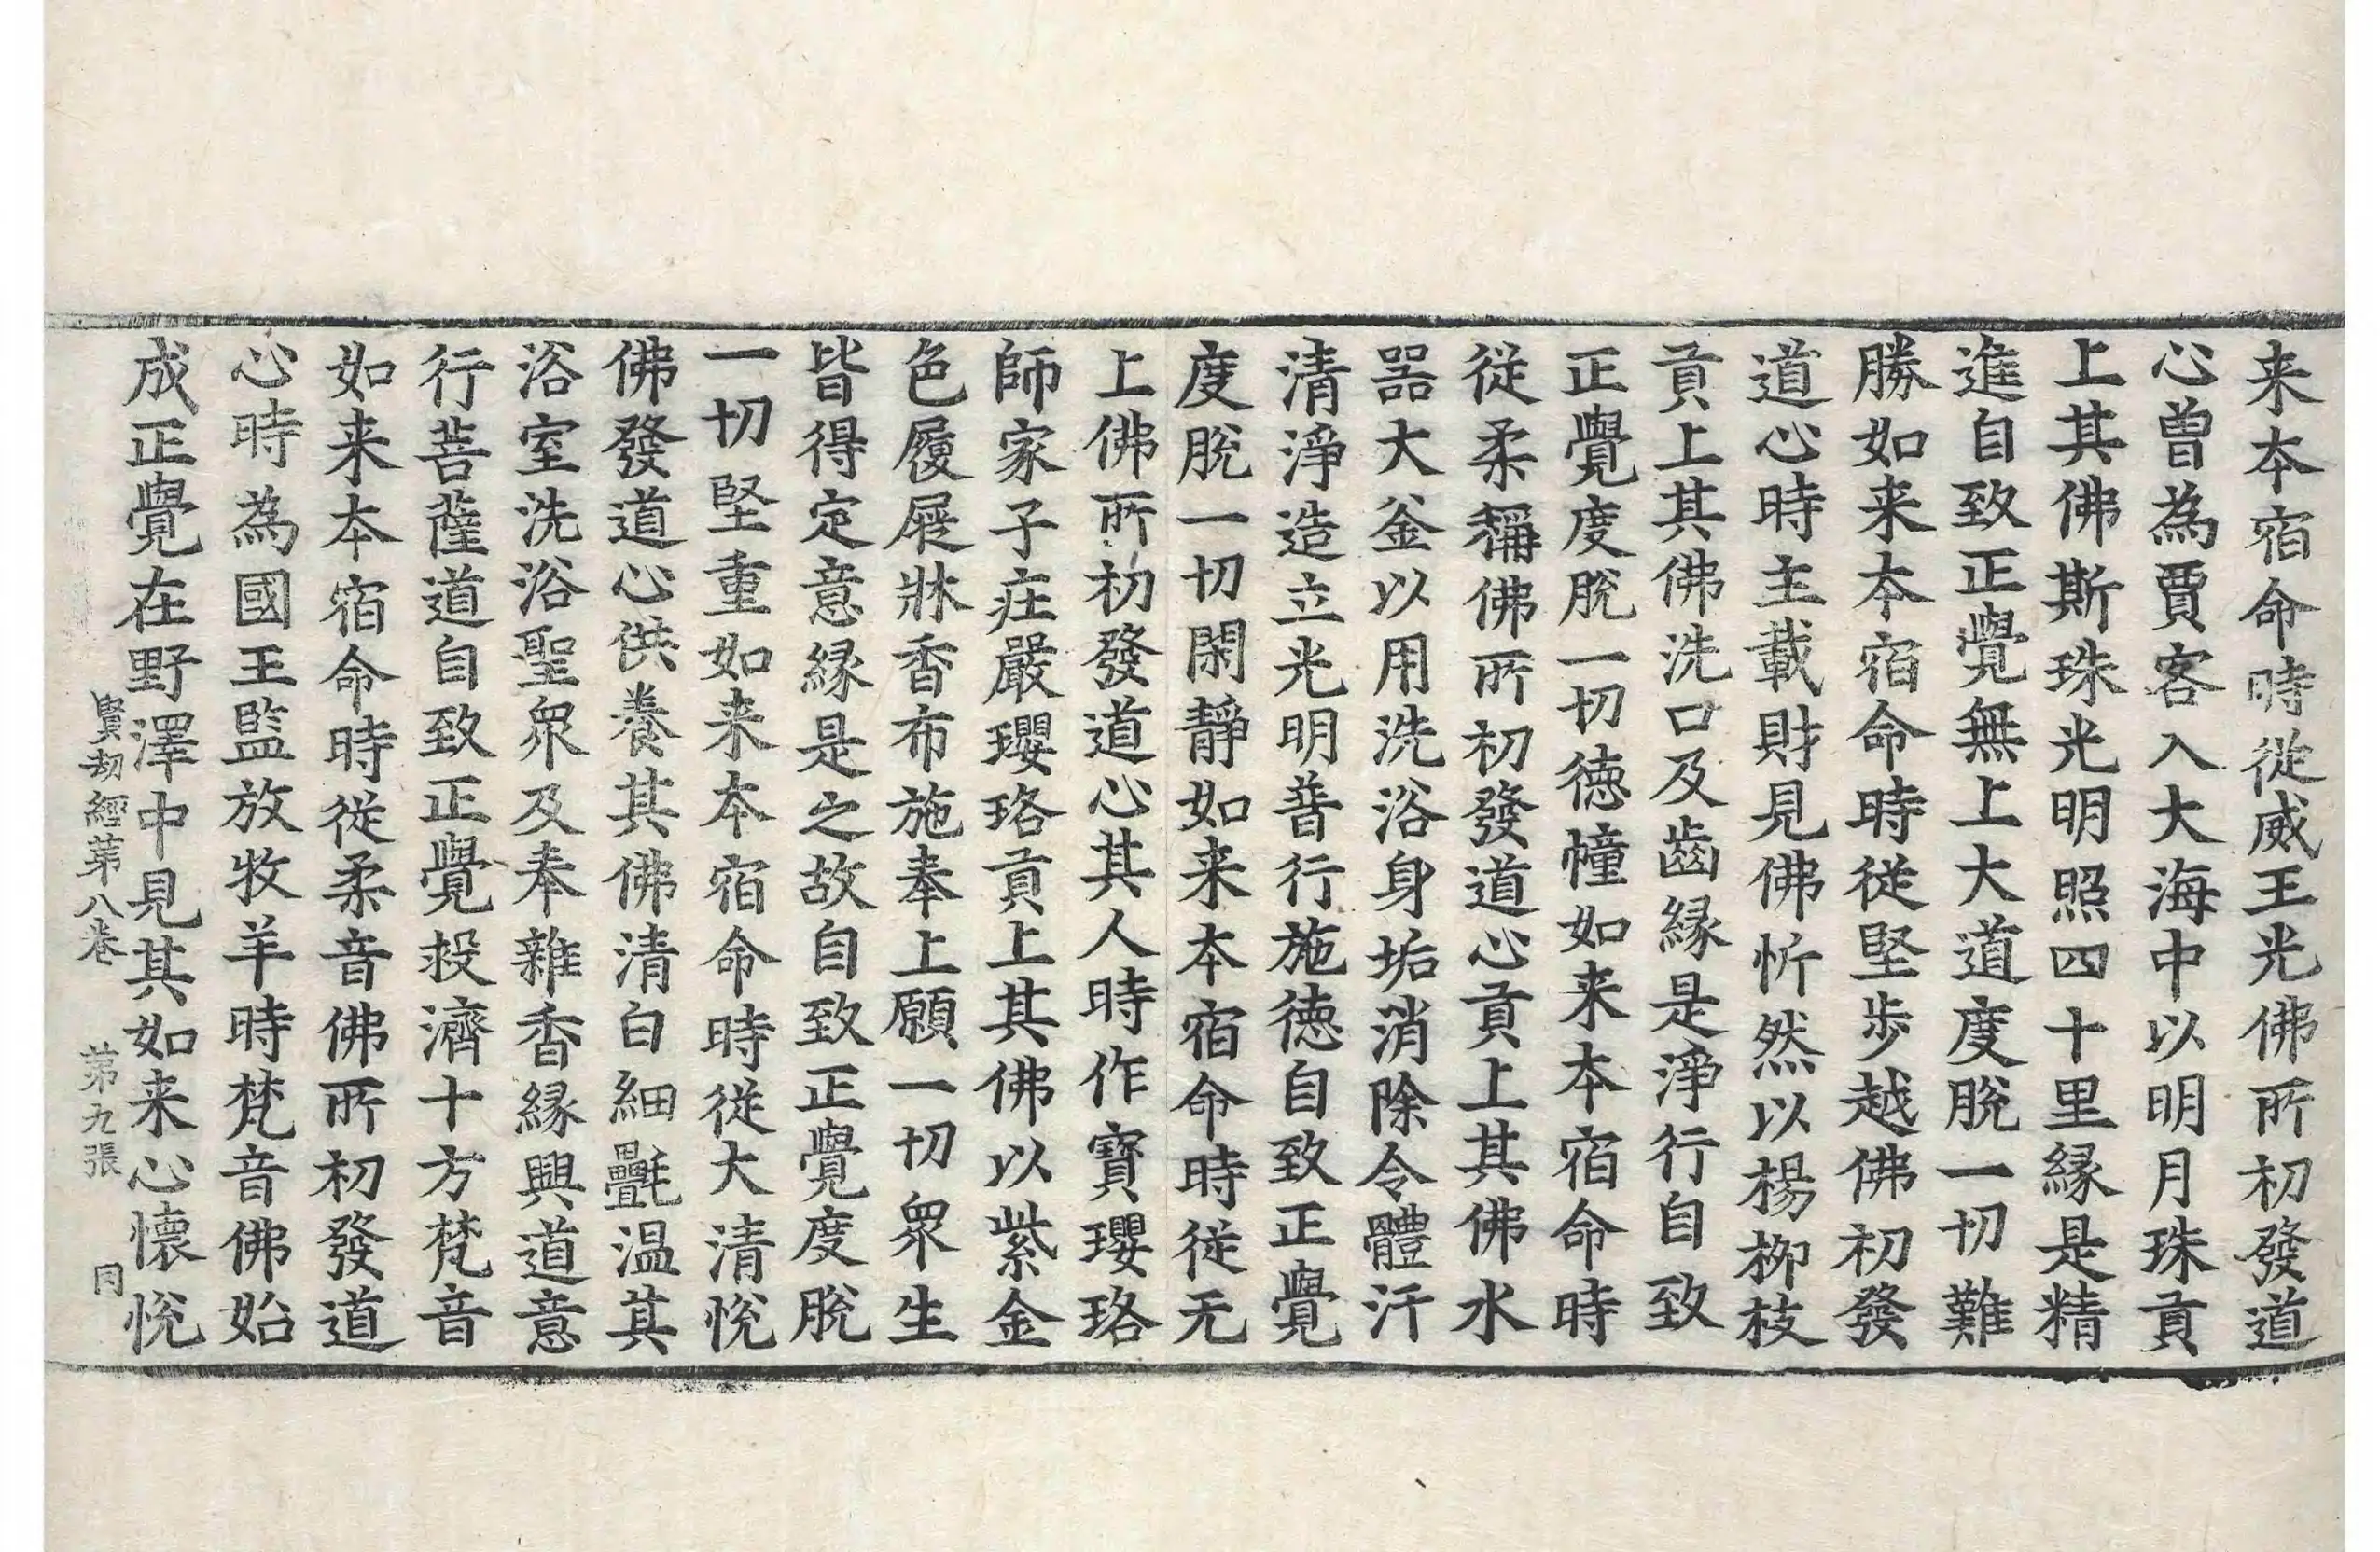 来本宿命時從威王光佛所初發道
心曽為賈客入大海中以明月珠貢
上其佛斯珠光明照四十里縁是精
進自致正覺無上大道度脫一切難
勝如来本宿命時從堅步越佛初發
道心時主載財見佛忻然以楊栁枝
貢上其佛洗口及齒縁是淨行自致
正覺度脫一切徳幢如来本宿命時
從柔稱佛所初發道心貢上其佛水
器大釜以用洗浴身垢消除令體汗
清淨造立光明普行施徳自致正覺
度脫一切閑靜如来本宿命時從无
上佛所初發道心其人時作寶瓔珞
師家子庄嚴瓔珞貢上其佛以紫金
色履屣牀香布施奉上願一切衆生
皆得定意縁是之故自致正覺度脫
一切堅重如来本宿命時從大清悅
佛發道心供養其佛清白細㲲温其
浴室洗浴聖衆及奉雜香縁興道意
行菩薩道自致正覺拯濟十方梵音
如来本宿命時從柔音佛所初發道
心時為國王監放牧羊時梵音佛始
成正覺在野澤中見其如来心懷悅
賢劫經第八卷 第九張 同